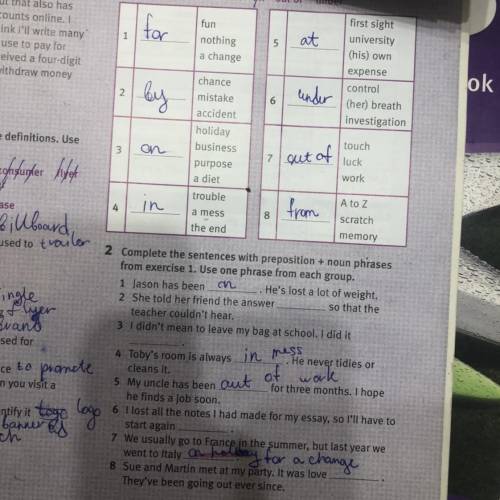 ut that also has
counts online. I
ink I'll write many
use to pay for
ceived a four-digit
withdraw money
e definitions. Use
consumer flyer
ase
billboard,
used to trailer
ingle
flyer
brand
sed for
ce to promote
n you visit a
ntify it logo logo
banner
ch
1 for fun
nothing
a change
2 by chance
mistake
accident
3 on holiday
business
purpose
a diet
4 in trouble
a mess
the end
5 at first sight
university
(his) own
expense
6 under control
(her) breath
investigation
7 out of touch
luck
work
8 from A to Z
scratch
memory
2 Complete the sentences with preposition + noun phrases
from exercise 1. Use one phrase from each group.
1 Jason has been on. He's lost a lot of weight.
2 She told her friend the answer so that the
teacher couldn't hear.
3 I didn't mean to leave my bag at school. I did it
.
4 Toby's room is always in mess. He never tidies or
cleans it.
5 My uncle has been out of work for three months. I hope
he finds a job soon.
6 I lost all the notes I had made for my essay, so I'll have to
start again .
7 We usually go to France in the summer, but last year we
went to Italy for a change
8 Sue and Martin met at my party. It was love .
They've been going out ever since.
ok